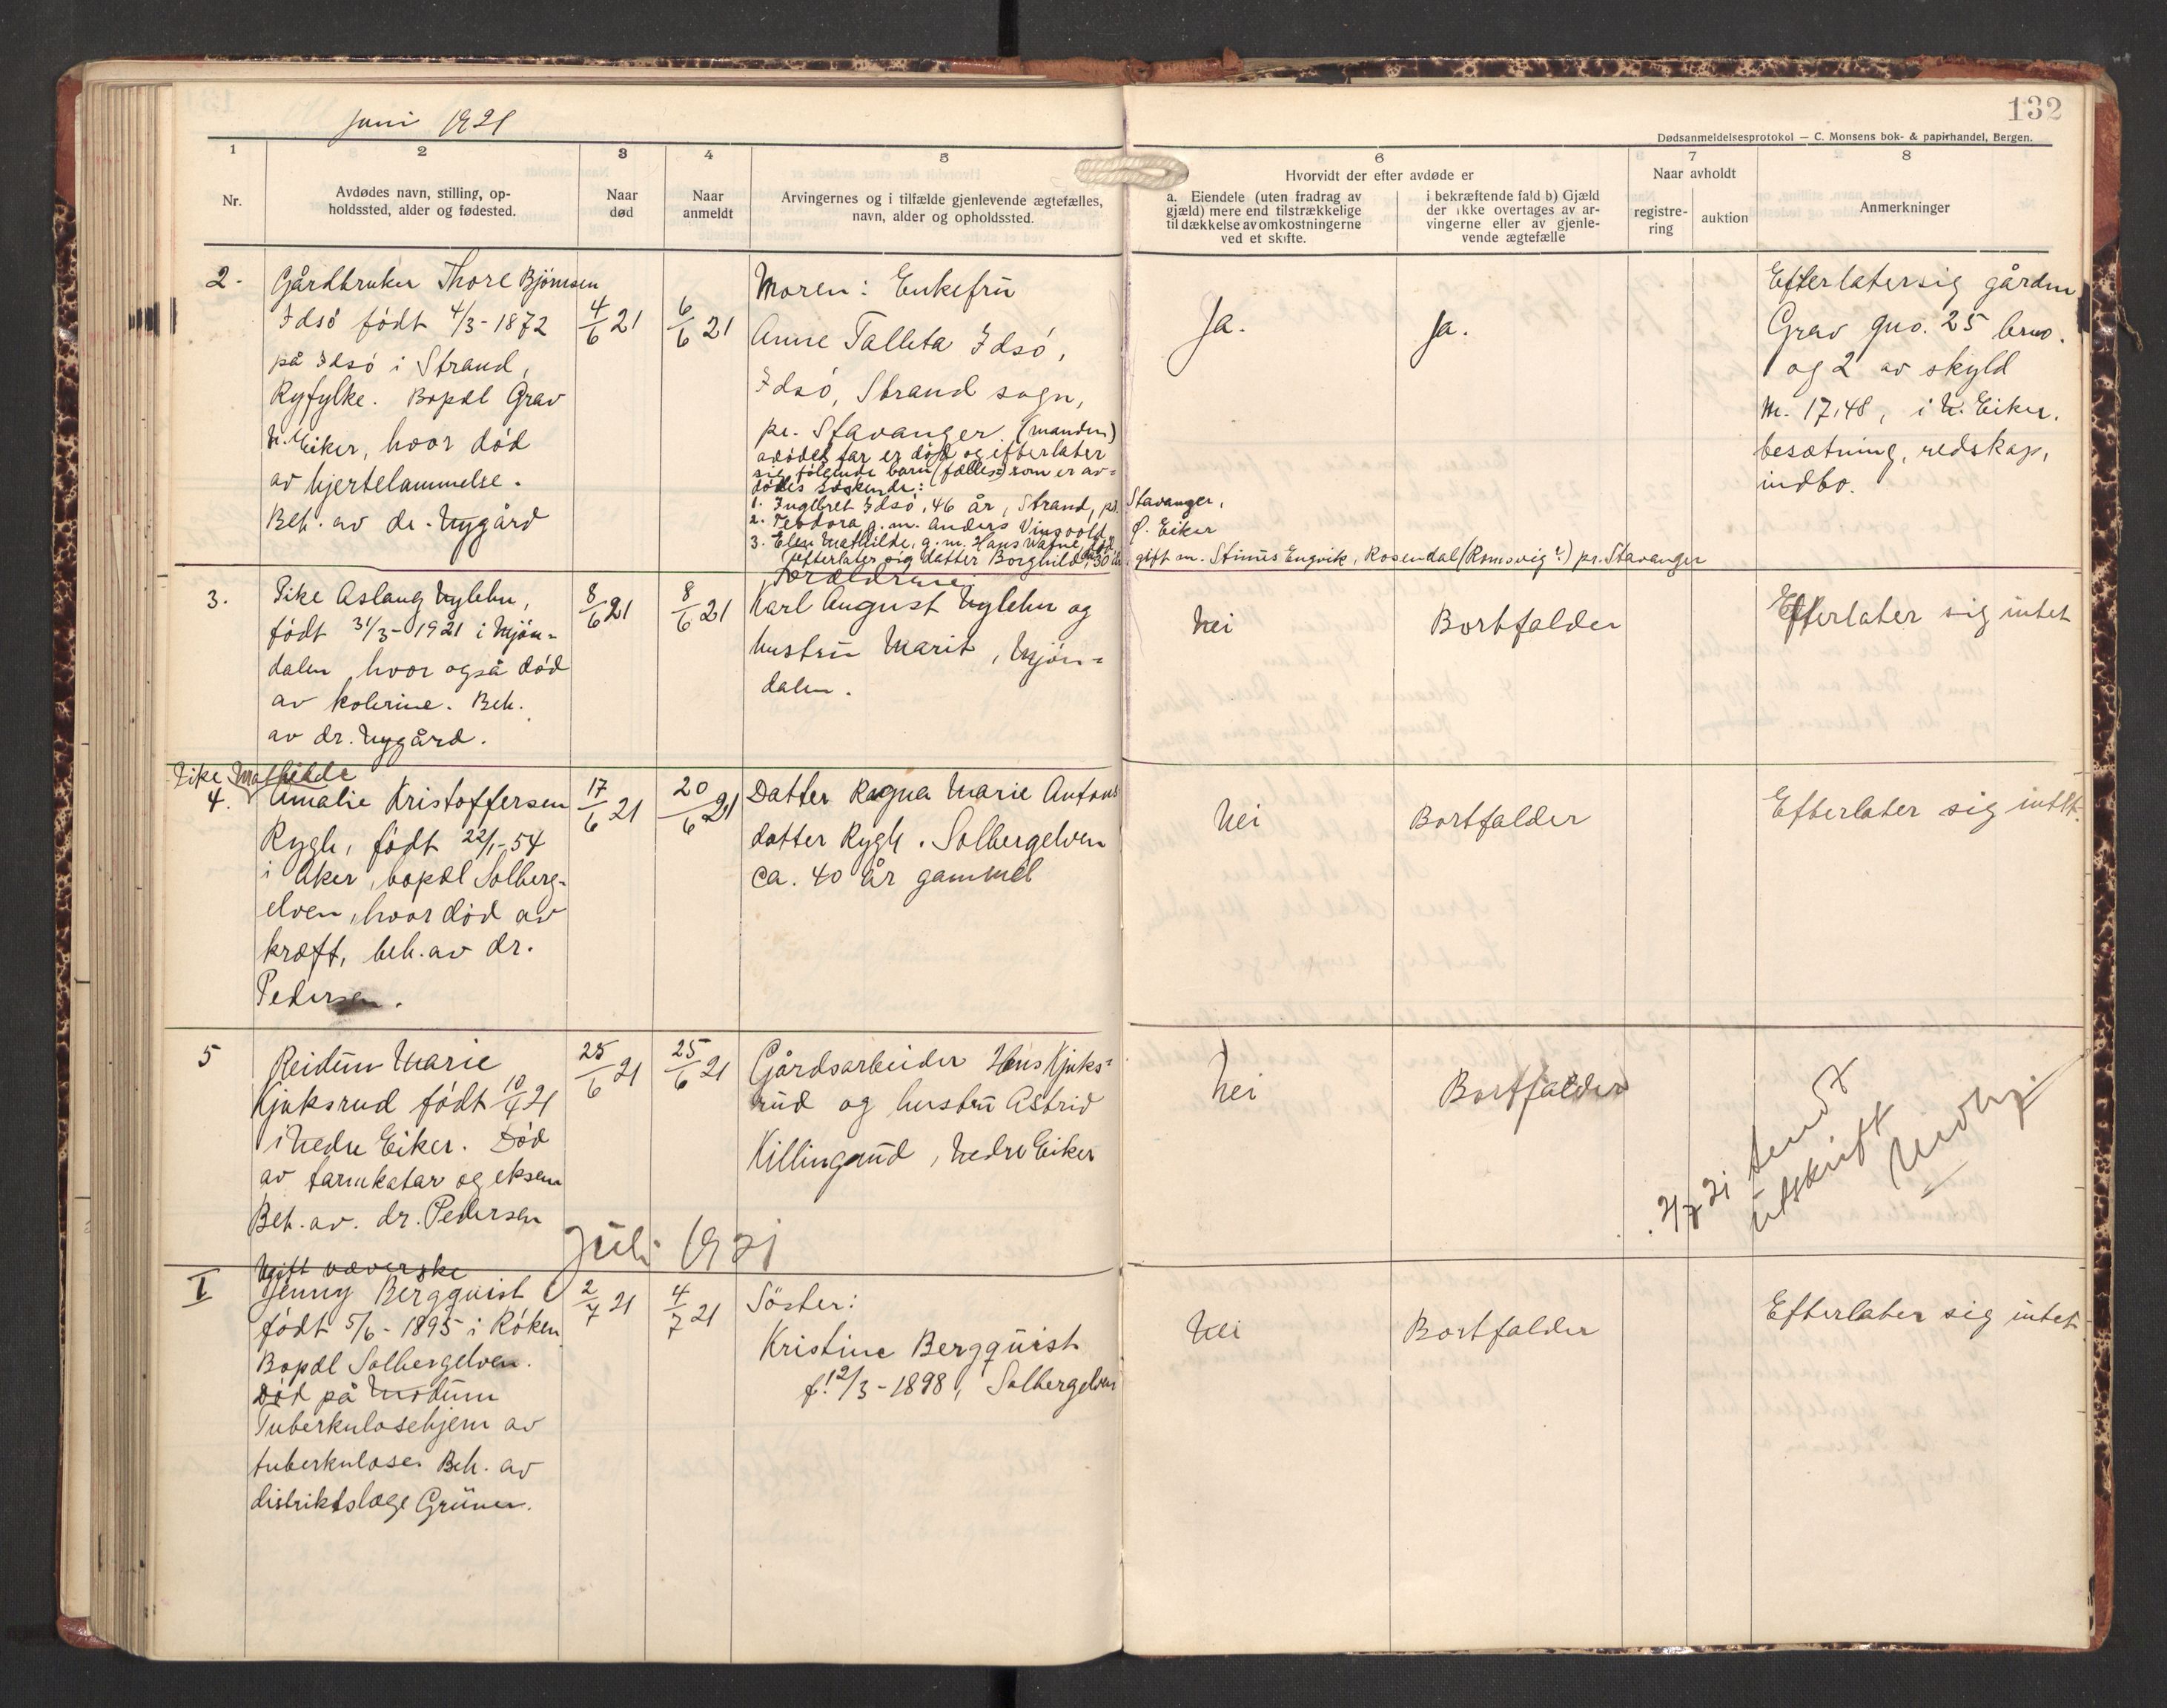 132
Juni 1921
Dødsanmeldelsesprotokol — C. Monsens bok- & papirhandel, Bergen.
1
2
3
4
5
6
7
8
Nr.
Avdødes navn, stilling, op-
holdssted, alder og fødested.
Naar
død
Naar
anmeldt
Arvingernes og i tilfælde gjenlevende ægtefælles,
navn, alder og opholdssted.
Hvorvidt der efter avdøde er
a. Eiendele (uten fradrag av
gjæld) mere end tilstrækkelige
til dækkelse av omkostningerne
ved et skifte.
i bekræftende fald b) Gjæld
der ikke overtages av ar-
vingerne eller av gjenle-
vende ægtefælle
Naar avholdt
registre-
ring
auktion
Anmerkninger
2.
Gårdbruker Thore Bjørnsen
Idsö født 4/3-1872
på Idsö i Strand,
Ryfylke. Bopæl Grav
N. Eiker, hvor död
av hjertelammelse.
Beh. av dr. Nygård
4/6 21
6/6 21
Moren: Enkefru
Anne Talleta Idsö,
Idsö, Strand sogn,
pr. Stavanger. (manden)
avödes far er död og efterlater
sig følgende barn (fælles) som er av=
dödes söskende:
1. Ingebret Idsö, 46 år, Strand, pr. Stavanger,
2. Teodora g.m. Anders Vinsvold, Ø. Eiker
3. Elen Mathilde, g.m. Hans Watne, död
(efterlater sig datter Borghild, 30 år, gift m. Stinus Engvik, Rosendal (Romsvig?) pr. Stavanger
Ja.
Ja.
Efterlater sig gården
Grav gno. 25 brno.
1 og 2 av skyld
m. 17,48, i N. Eiker.
besætning, redskap,
indbo.
3.
Pike Aslaug Nylehn,
født 31/3-1921 i Mjön-
dalen hvor også död
av kolerine. Beh.
av dr. Nygård.
8/6 21
8/6 21
Forældrene:
Karl August Nylehn og
hustru Marit, Mjön=
dalen.
Nei
Bortfalder
Efterlater sig intet
4.
Pike Mathilde
Amalie Kristoffersen
Rygh, født 22/1-54
i Aker, bopæl Solberg-
elven, hvor död av
kræft, beh. av dr.
Pedersen.
17/6 21
20/6 21
Datter Ragna Marie Antons
datter Rygh. Solbergelven
ca. 40 år gammel
Nei
Bortfalder
Efterlater sig intet.
5
Reidun Marie
Kjuksrud født 10/4 21
i Nedre Eiker. Död
av tarmkatar og eksem
Beh. av. dr. Pedersen
25/6 21
25/6 21
Gårdsarbeider Hans Kjuks=
rud og hustru Astrid
Killingrud, Nedre Eiker
Nei
Bortfalder
2/7 21 sendt
utskrift
Juli 1921
I
Ugift væverske
Jenny Bergquist
født 5/6-1895 i Röken
Bopæl Solbergelven.
Död på Modum
Tuberkulosehjem av
tuberkulose. Beh. av
distriktslæge Grüner.
2/7 21
4/7 21
Söster:
Kristine Bergquist
f. 12/3-1898, Solbergelven
Nei
Bortfalder
Efterlater sig intet